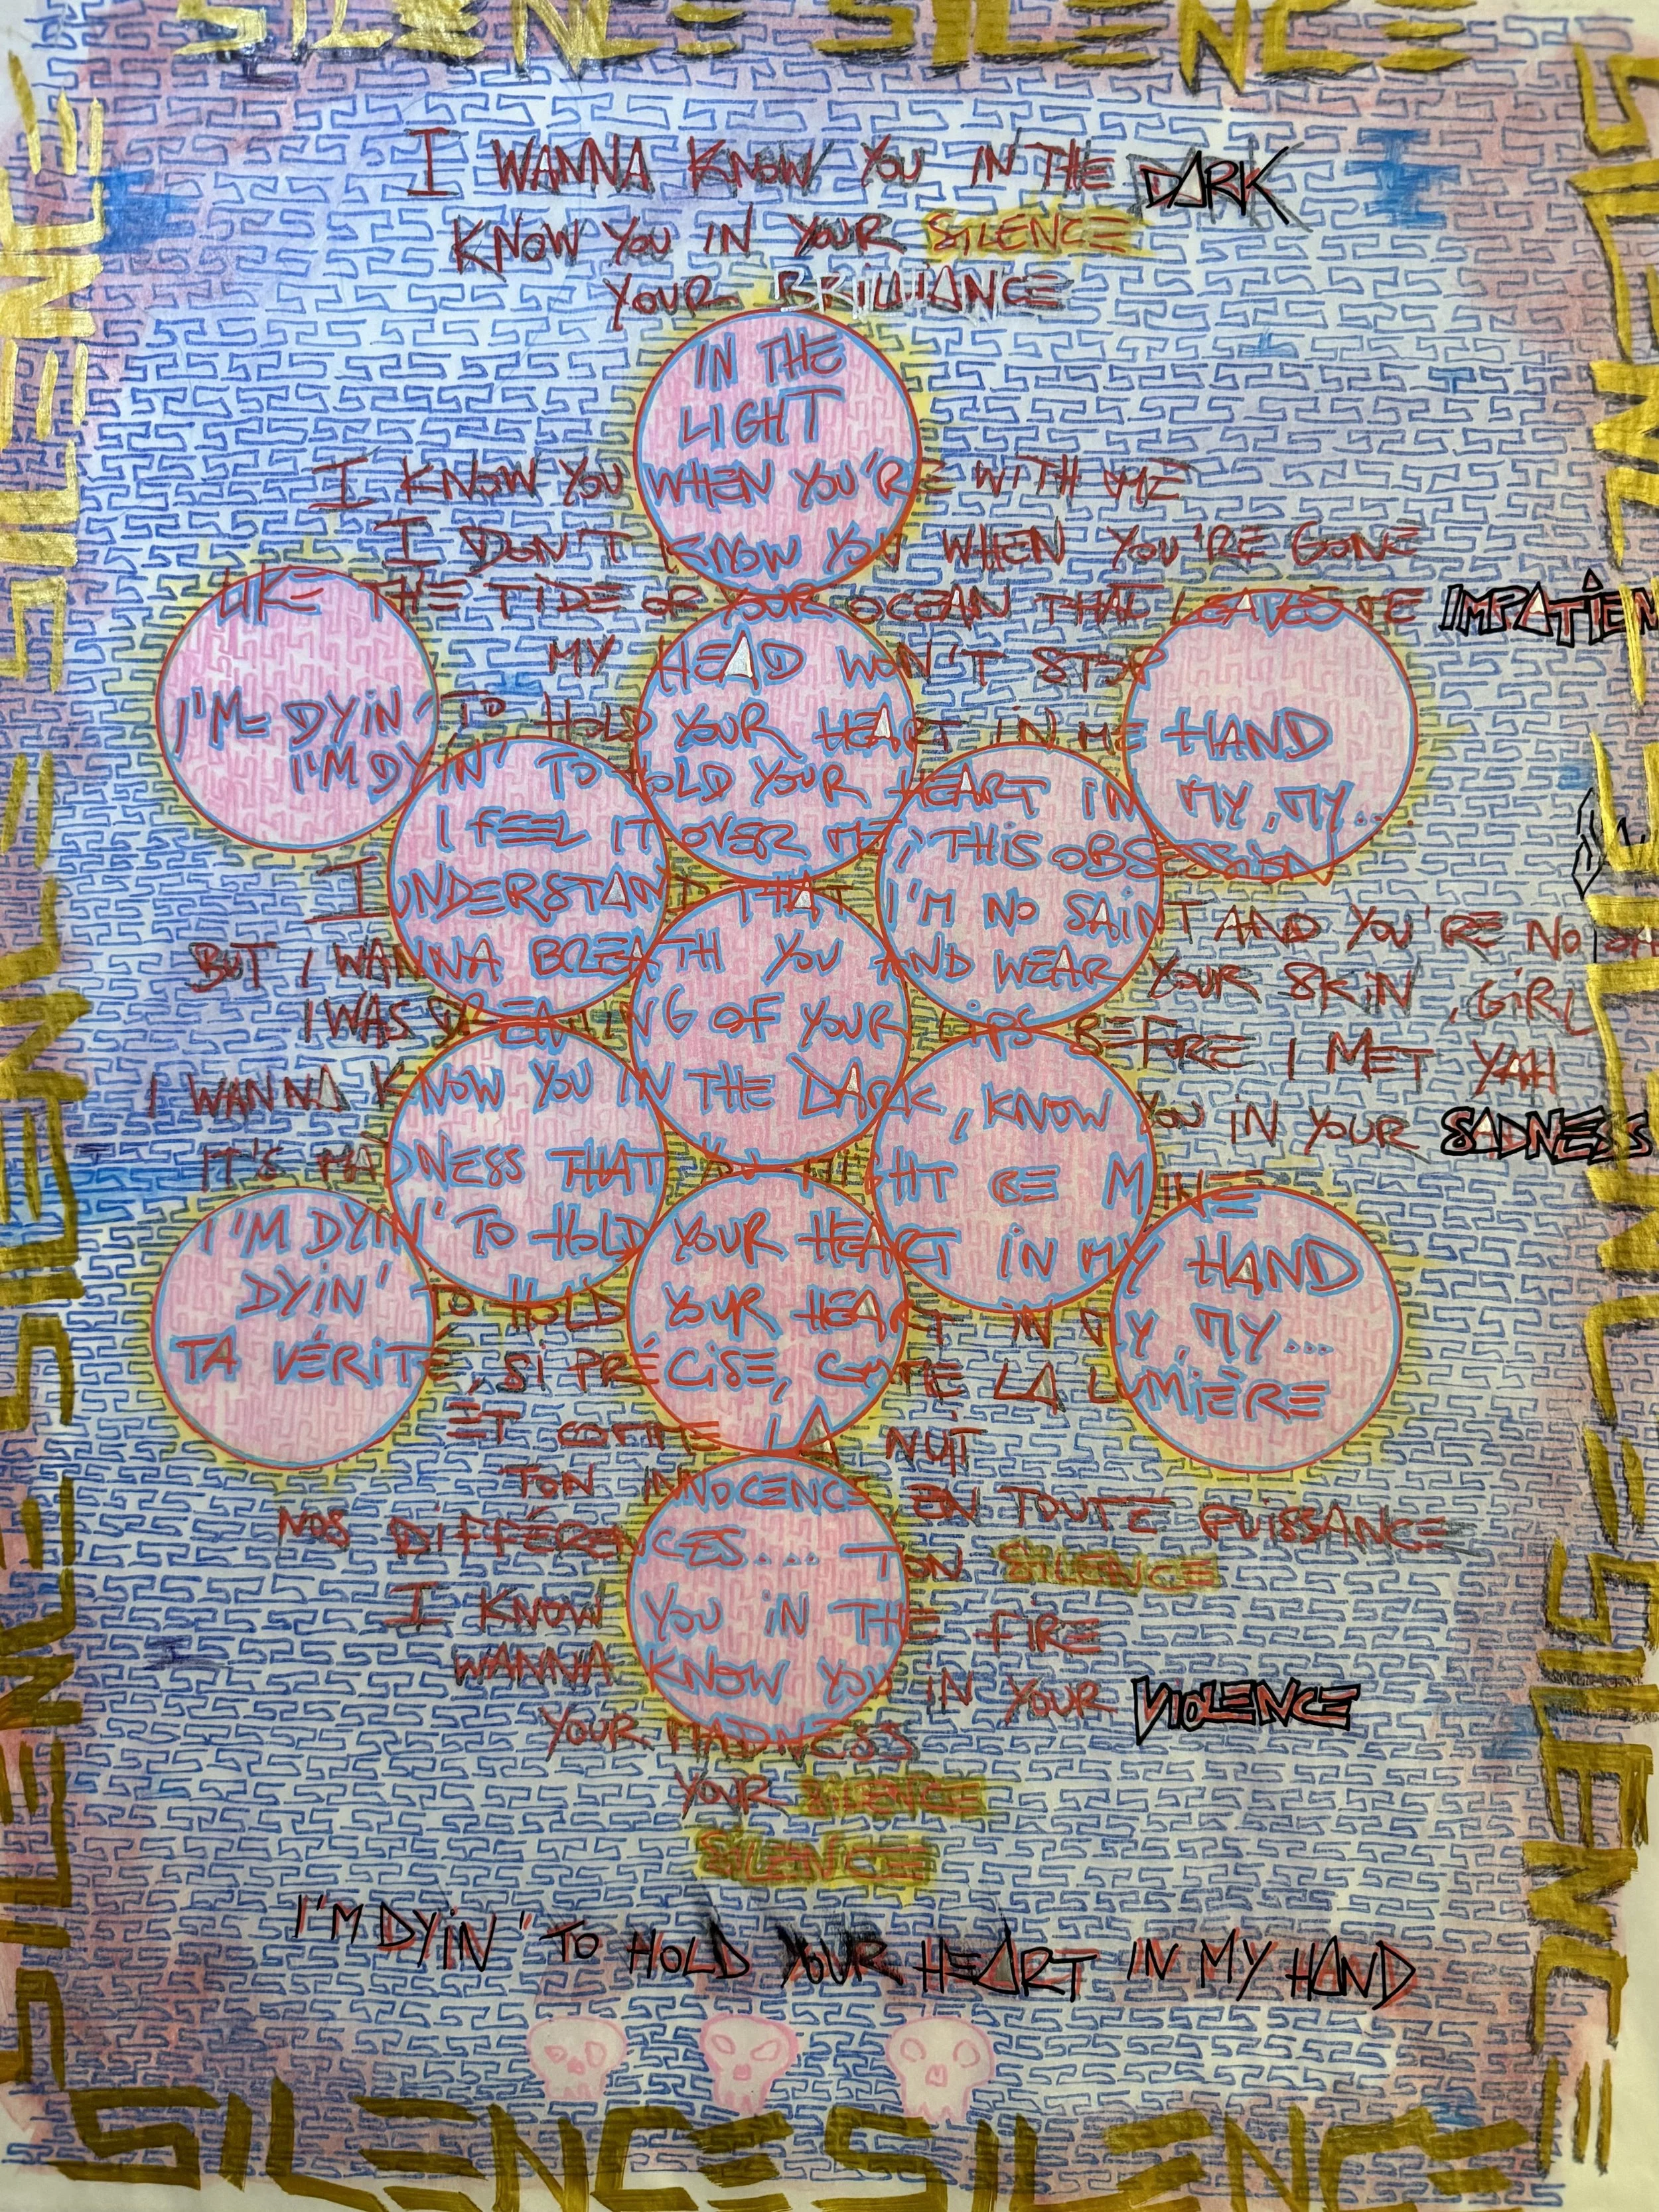 SILENCE SILENCE
SILENCE
SILENCE
I WANNA KNOW YOU IN THE DARK
KNOW YOU IN YOUR SILENCE
YOUR BRILLIANCE
IN THE
LIGHT
I KNOW YOU WHEN YOU'RE WITH ME
I DON'T KNOW YOU WHEN YOU'RE GONE
LIKE THE TIDE OR YOUR OCEAN THAT LEAVES ME IMPATIEN
MY HEAD WON'T STOP
I'M DYIN' TO HOLD YOUR HEART IN ME HAND
I'M DYIN' TO HOLD YOUR HEART IN MY, MY...
I FEEL IT OVER ME, THIS OBSESSION
I UNDERSTAND THAT I'M NO SAINT AND YOU'RE NO
BUT I WANNA BREATH YOU AND WEAR YOUR SKIN, GIRL
I WAS DREAMING OF YOUR LIPS BEFORE I MET YAH
I WANNA KNOW YOU IN THE DARK, KNOW YOU IN YOUR SADNESS
IT'S MADNESS THAT MIGHT BE MINE
I'M DYIN' TO HOLD YOUR HEART IN MY HAND
DYIN' TO HOLD YOUR HEART IN MY, MY...
TA VÉRITÉ, SI PRÉCISE, COMME LA LUMIÈRE
ET COMME LA NUIT
TON INNOCENCE, EN TOUTE PUISSANCE
NOS DIFFÉRENCES.... TON SILENCE
I KNOW YOU IN THE FIRE
WANNA KNOW YOU IN YOUR VIOLENCE
YOUR MADNESS
YOUR SILENCE
SILENCE
I'M DYIN' TO HOLD YOUR HEART IN MY HAND
SILENCE SILENCE